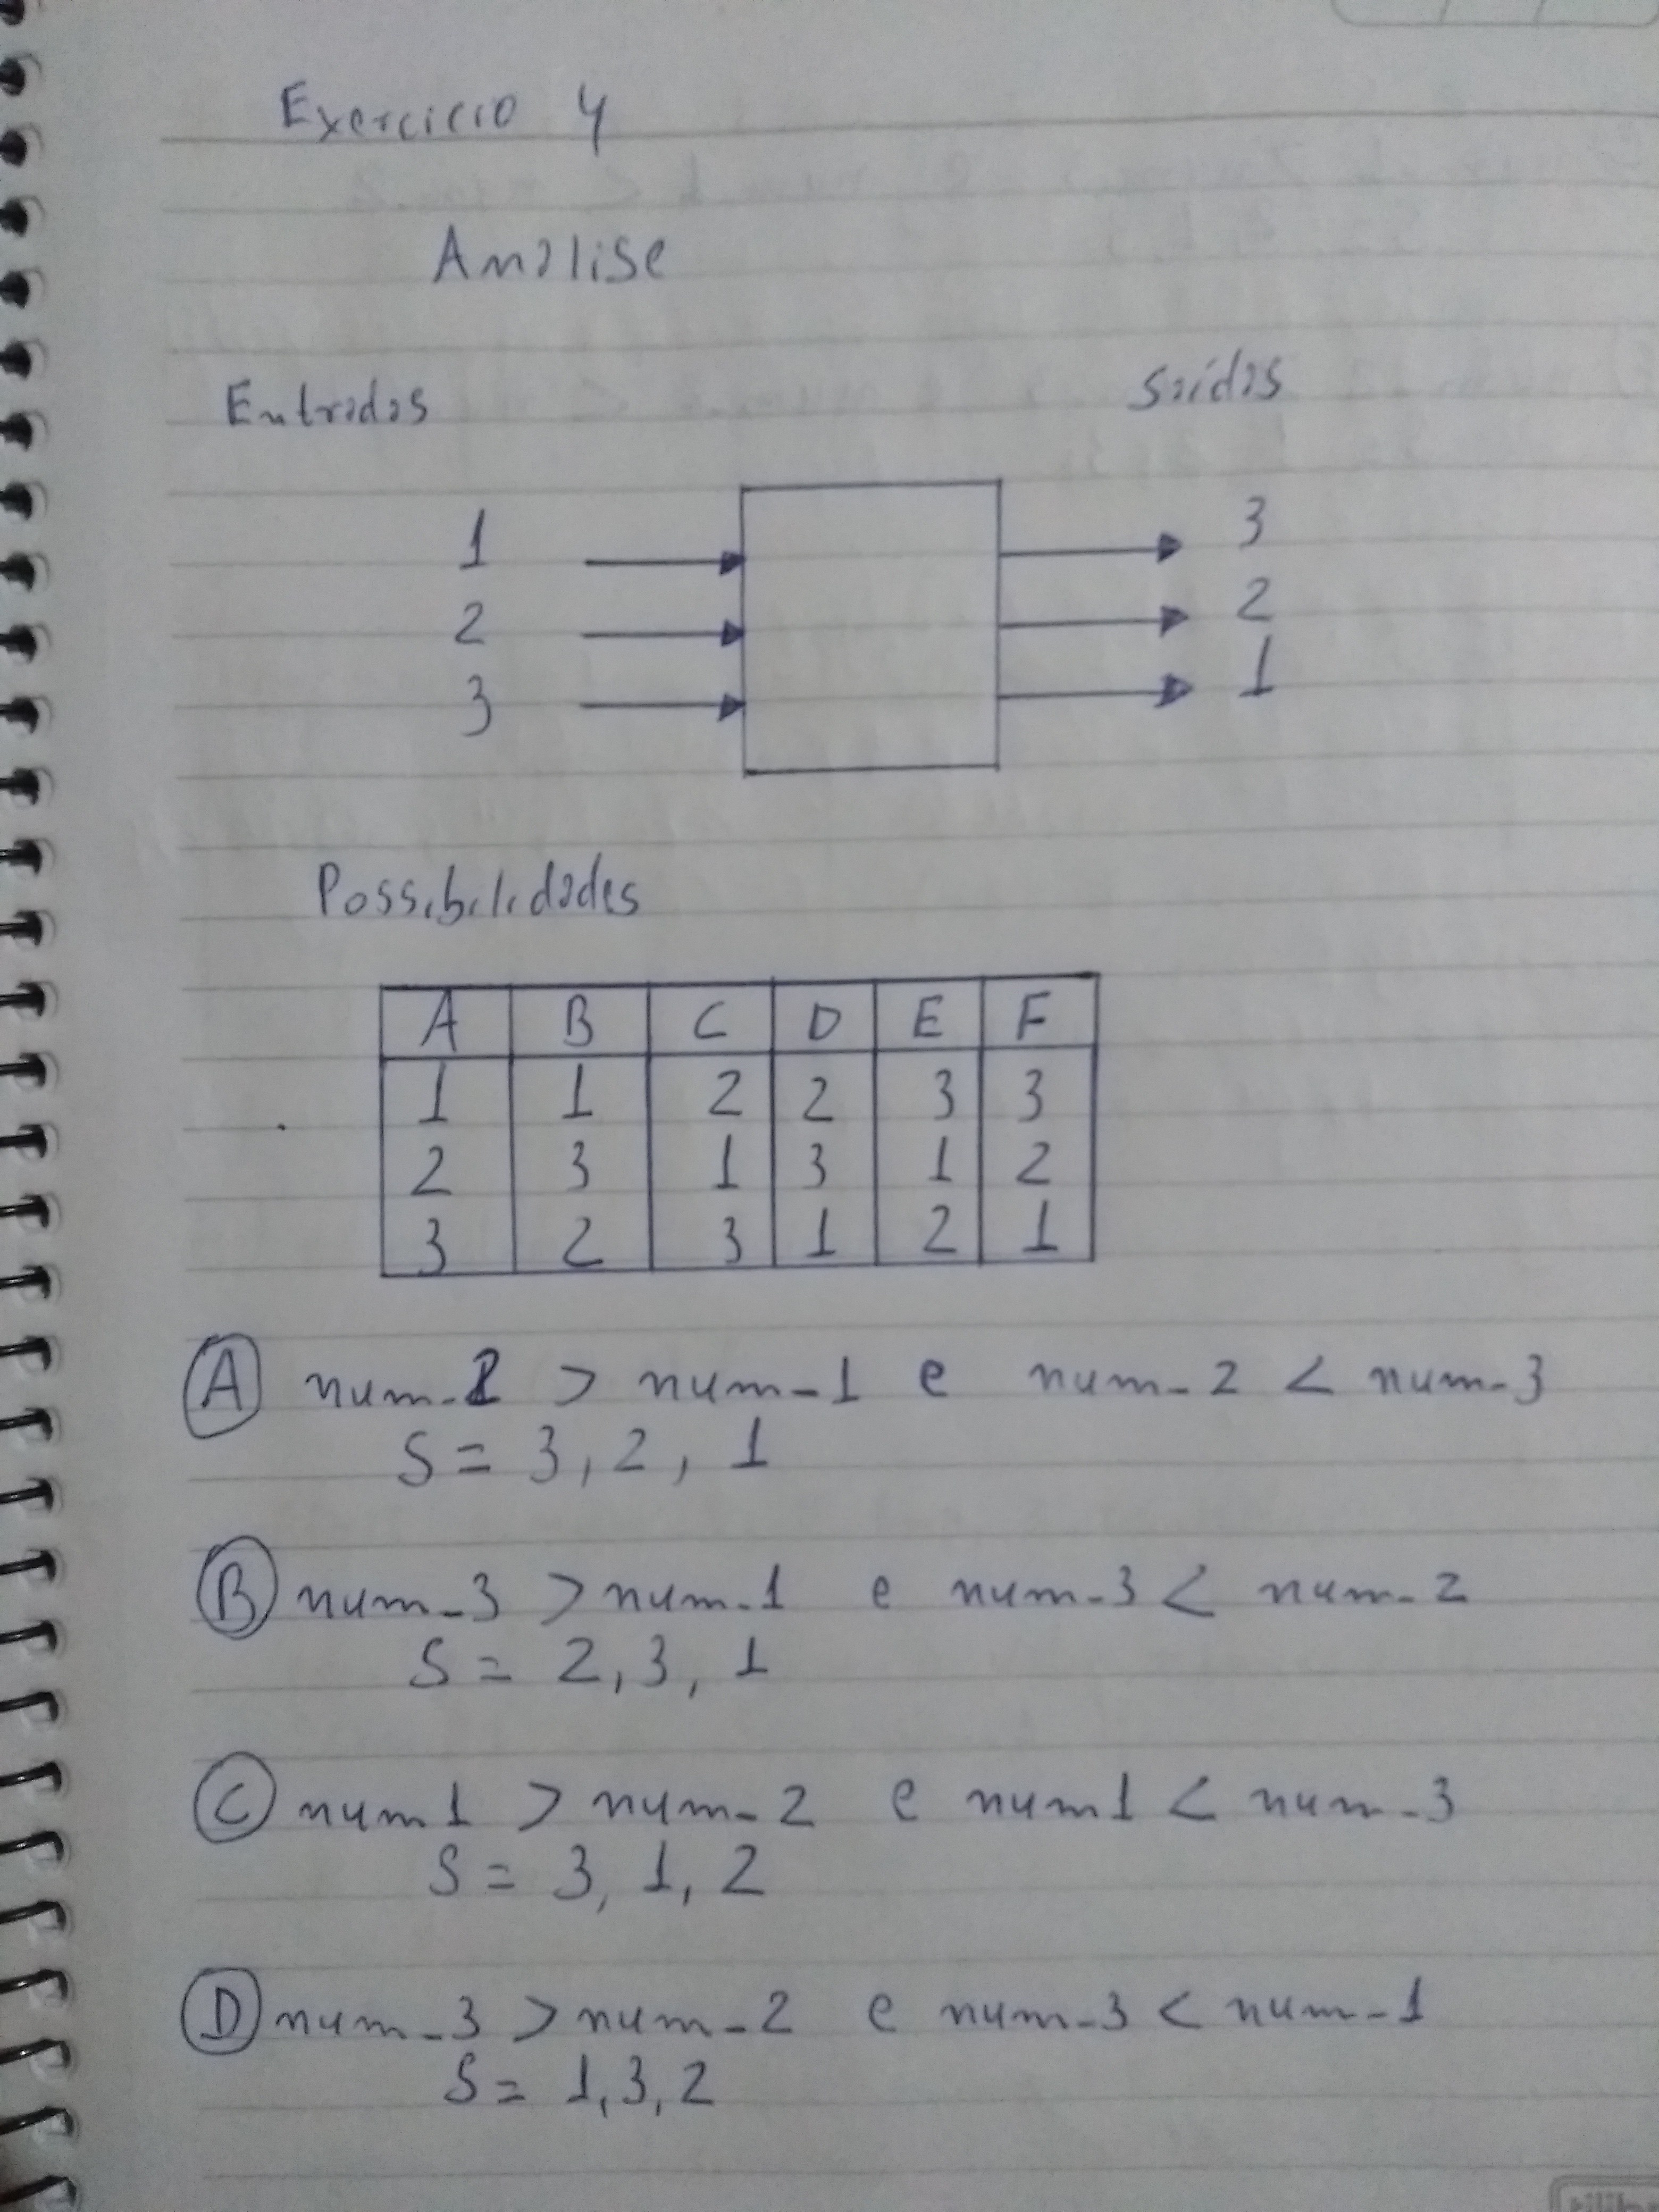 Exercicio 4
Análise
Entradas Saídas
1 3
2 2
3 1
Possibilidades
A B C D E F
1 1 2 2 3 3
2 3 1 3 1 2
3 2 3 1 2 1
A num_2 > num_1 e num_2 < num_3
S = 3, 2, 1
B num_3 > num_1 e num_3 < num_2
S = 2, 3, 1
C num1 > num_2 e num1 < num_3
S = 3, 1, 2
D num_3 > num_2 e num_3 < num_1
S = 1, 3, 2